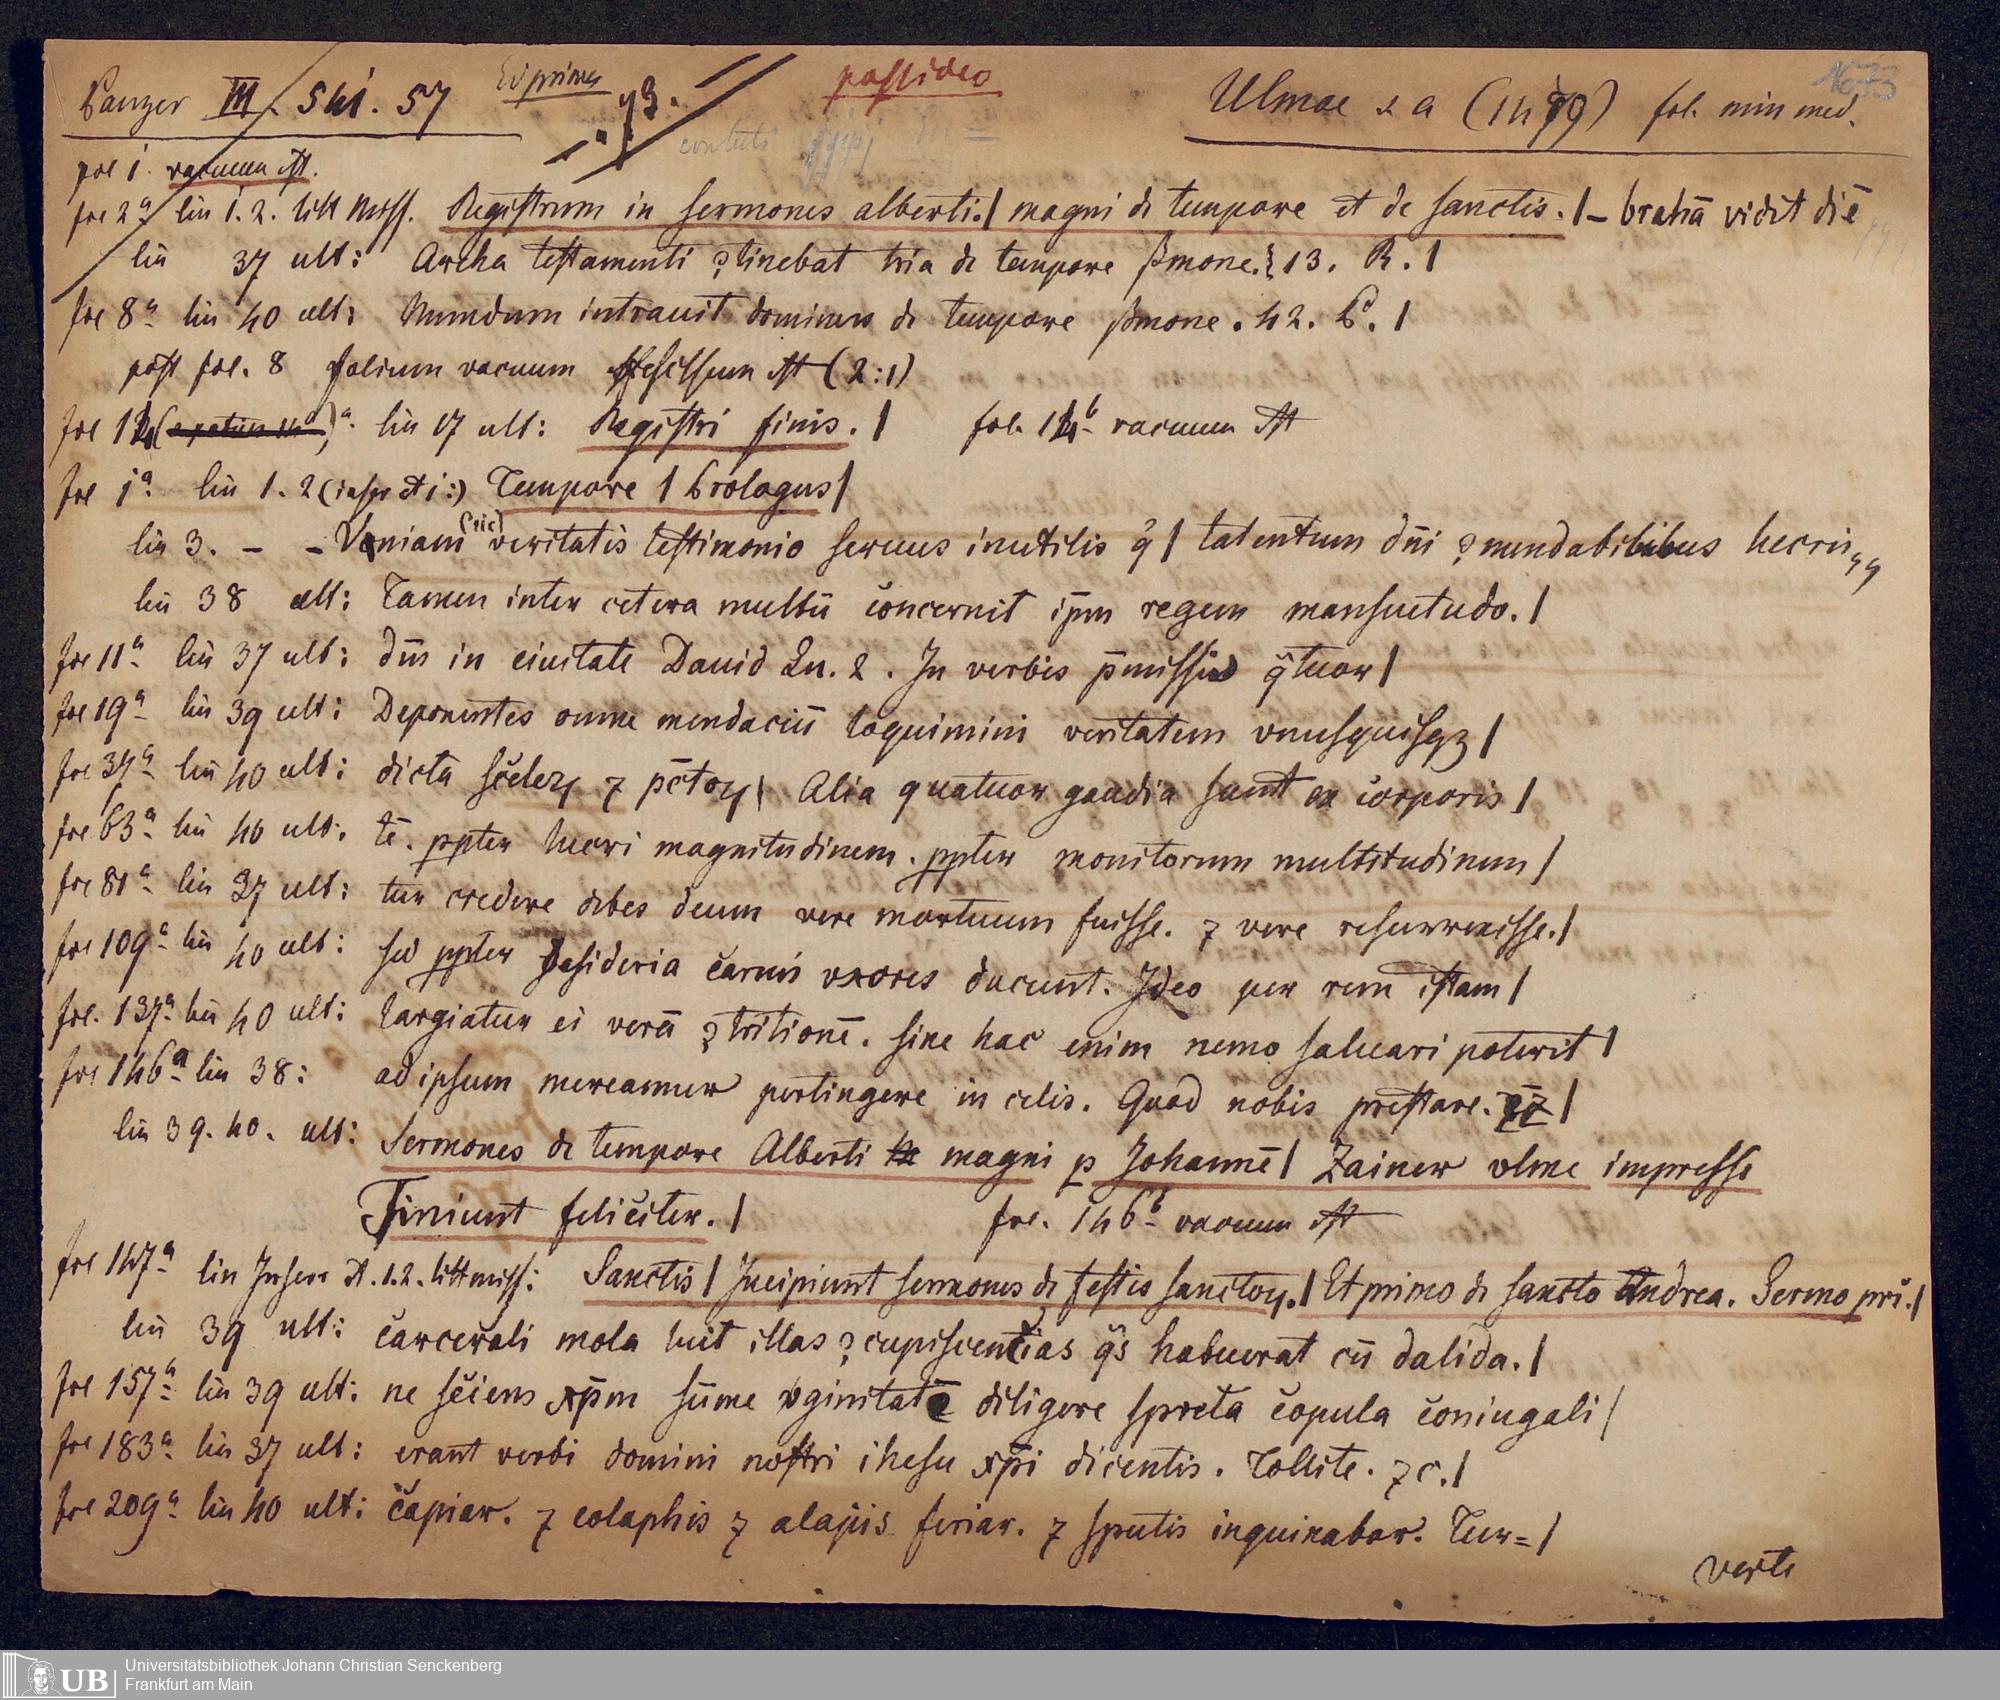 Panzer III. 541. 57 Ed primes 73. possideo Ulmae s a (1479) fol. min med.
contuli
fol 1. vacuum est.
fol 2a lin 1. 2. litt miss. Registrum in sermones alberti./ magni de tempore et de sanctis./ – brahā vidit diē
lin 37 ult: Archa testamenti ꝯtinebat tria de tempore ßmone. 13. R. /
fol 8a lin 40 ult: Mundum intrauit dominus de tempore ßmone . 42. P. /
post fol. 8 folium vacuum est (2:1)
fol 14 a lin 17 ult: Registri finis. / fol. 14b vacuum est
fol 1a lin 1. 2 (inser et i:) Tempore / Prologus /
lin 3. – – Veniam (sic) veritatis testimonio seruus inutilis q̄ / talentum dn̄i ꝯmendabilibus
lin 38 ult: Tamen inter cetera multū concernit ip̄m regem mansuetudo. /
fol 11a lin 37 ult: dn̄s in ciuitate Dauid Lu. 2. In verbis p̄missis q̄tuor /
fol 19a lin 39 ult: Deponentes omne mendaciū loquimini veritatem vnusquisqꝫ /
fol 37a lin 40 ult: dicta scelerꝝ ⁊ pc̄toꝝ / Alia quatuor gaudia sunt ex corporis /
fol 63a lin 40 ult: tē. ꝓpter lucri magnitudinem. ꝓpter monitorum multitudinem /
fol 81a lin 37 ult: tur credere debes deum vere mortuum fuisse. ⁊ vere resurrexisse. /
fol 109a lin 40 ult: sed ꝓpter desideria carnis vxores ducunt. Ideo per rem istam /
fol. 137a lin 40 ult: largiatur ei verā ꝯtritionē. sine hac enim nemo saluari poterit /
fol 146a lin 38: ad ipsum mereamur pertingere in celis. Quod nobis prestare. /
lin 39. 40. ult: Sermones de tempore Alberti magni p Johannē / Zainer vlme impresse
Finiunt feliciter. / fol. 146b vacuum est
fol 147a lin Inser et .1.2. litt miss: Sanctis / Incipiunt sermones de festis sanctoꝝ. / Et primo de sancto Andrea. Sermo pri. /
lin 39 ult: carcerali mola luit illas ꝯcupiscentias q̄s habuerat cū dalida. /
fol 157a lin 39 ult: ne sciens xp̄m sūme v̓ginitatē diligere spreta copula coniugali /
fol 183a lin 37 ult: erant verbi domini nostri ihesu xp̄i dicentis. Tollite. ⁊c. /
fol 209a lin 40 ult: capiar. ⁊ colaphis ⁊ alapis feriar. ⁊ sputis inquinabor. Tur= /
verte
UB Universitätsbibliothek Johann Christian Senckenberg
Frankfurt am Main